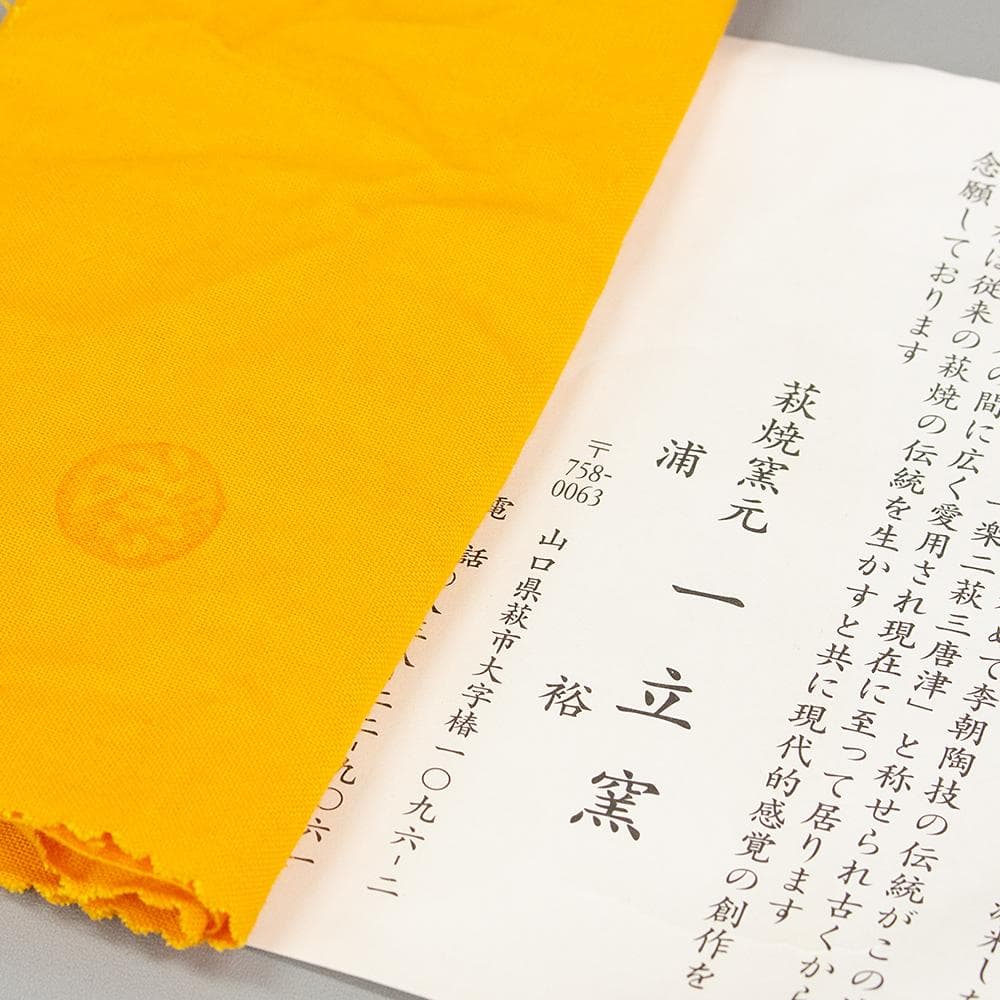 めて李朝陶技の伝統がこの
一楽二萩三唐津」と称せられ古くから
の間に広く愛用され現在に至って居ります
は従来の萩焼の伝統を生かすと共に現代的感覚の創作を
念願しております
萩焼窯元
一立窯
浦 裕
〒758-0063 山口県萩市大字椿一〇九六-二
電話 二二-九〇六一